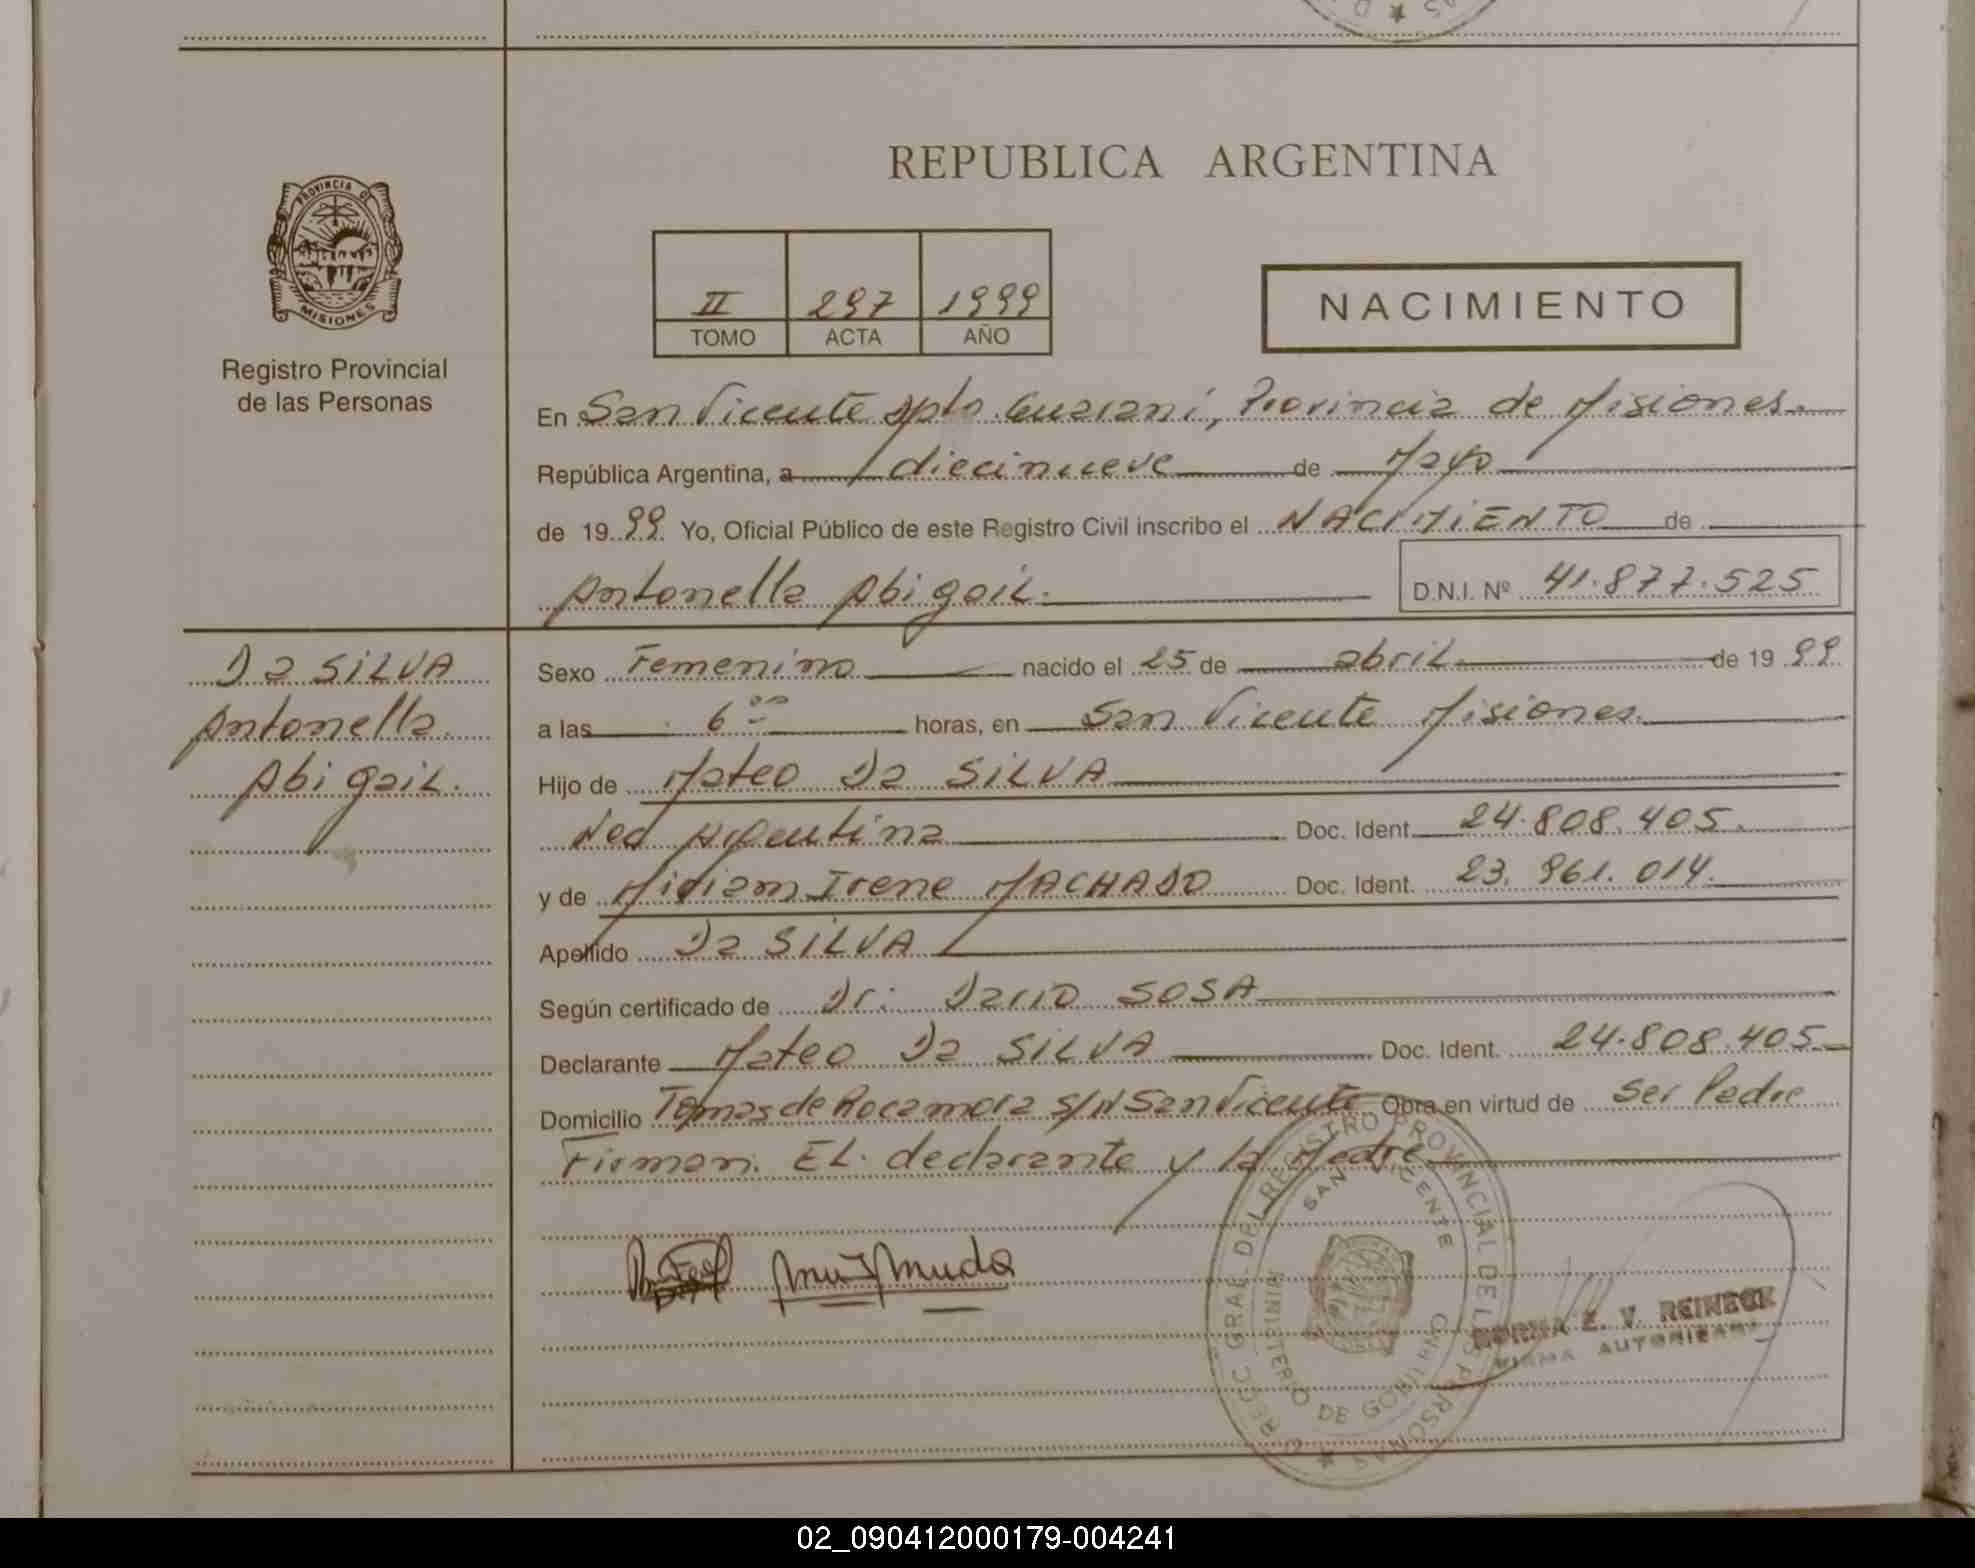 REPUBLICA ARGENTINA
PROVINCIA D
MISIONES
Registro Provincial
de las Personas
II 297 1999
TOMO ACTA AÑO
NACIMIENTO
En San Vicente Dpto. Guaraní, Provincia de Misiones.
República Argentina, a diecinueve de Mayo
de 19 99 Yo, Oficial Público de este Registro Civil inscribo el NACIMIENTO de
Antonella Abigail.
D.N.I. Nº 41.877.525
Da SILVA
Antonella
Abigail.
Sexo Femenino nacido el 25 de abril de 19 99
a las 6 00 horas, en San Vicente Misiones.
Hijo de Mateo Da SILVA
Nac Argentina Doc. Ident. 24.808.405.
y de Miriam Irene MACHADO Doc. Ident. 23.961.014.
Apellido Da SILVA
Según certificado de Dr. Dario SOSA
Declarante Mateo Da SILVA Doc. Ident. 24.808.405
Domicilio Tomas de Rocamora S/N San Vicente Obra en virtud de ser Padre
Firman: EL declarante y la Madre
REGISTRO PROVINCIAL DE LAS PERSONAS
SAN VICENTE
MINISTERIO DE GOBIERNO
NORMA Z. V. REINECK
FIRMA AUTORIZADA
02_090412000179-004241